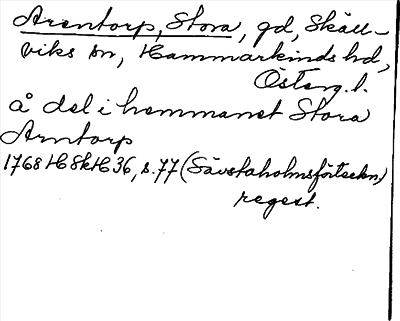 Arentorp, Stora, gd, Skäll-
viks sn, Hammarkinds hd,
Österg. l.
å del i hemmanet Stora
Arntorp
1768 HSkH 36, s. 77 (Sävstaholmsförteckn.)
regest.